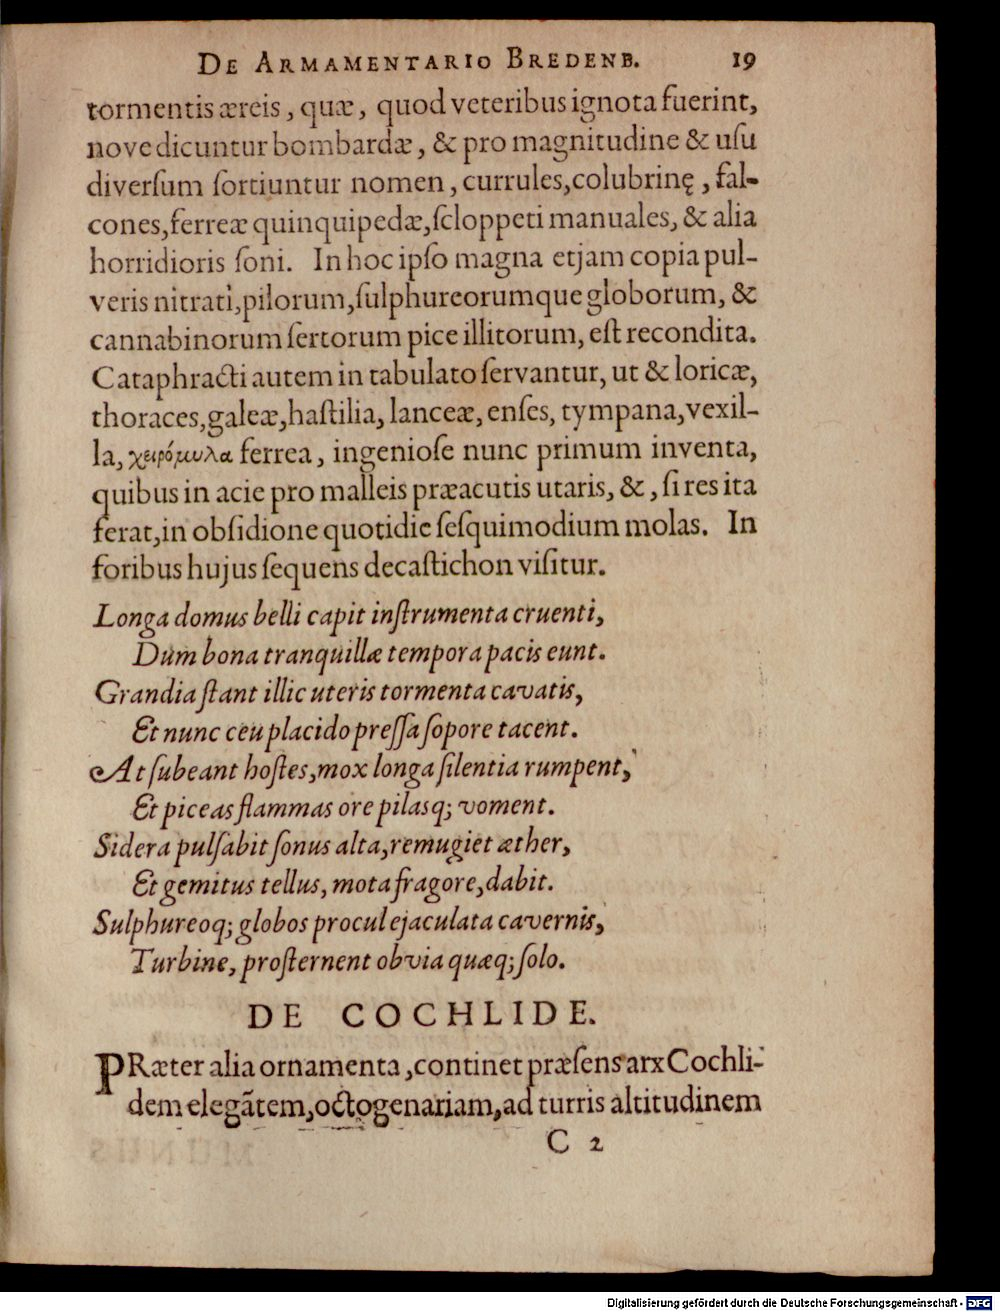 De Armamentario Bredenb. 19
tormentis æreis, quæ, quod veteribus ignota fuerint,
nove dicuntur bombardæ, & pro magnitudine & uſu
diverſum ſortiuntur nomen, currules, colubrinę, fal-
cones, ferreæ quinquipedæ, ſcloppeti manuales, & alia
horridioris ſoni. In hoc ipſo magna etjam copia pul-
veris nitrati, pilorum, ſulphureorumque globorum, &
cannabinorum ſertorum pice illitorum, eſt recondita.
Cataphracti autem in tabulato ſervantur, ut & loricæ,
thoraces, galeæ, haſtilia, lanceæ, enſes, tympana, vexil-
la, χειρόμυλα ferrea, ingenioſe nunc primum inventa,
quibus in acie pro malleis præacutis utaris, &, ſi res ita
ferat, in obſidione quotidie ſeſquimodium molas. In
foribus hujus ſequens decaſtichon viſitur.
Longa domus belli capit inſtrumenta cruenti,
Dum bona tranquillæ tempora pacis eunt.
Grandia ſtant illic uteris tormenta cavatis,
Et nunc ceu placido preſſa ſopore tacent.
At ſubeant hoſtes, mox longa ſilentia rumpent,
Et piceas flammas ore pilasq; voment.
Sidera pulſabit ſonus alta, remugiet æther,
Et gemitus tellus, mota fragore, dabit.
Sulphureoq; globos procul ejaculata cavernis,
Turbine, proſternent obvia quæq; ſolo.
DE COCHLIDE.
PRæter alia ornamenta, continet præſens arx Cochli-
dem elegãtem, octogenariam, ad turris altitudinem
C 2
Digitalisierung gefördert durch die Deutsche Forschungsgemeinschaft - DFG